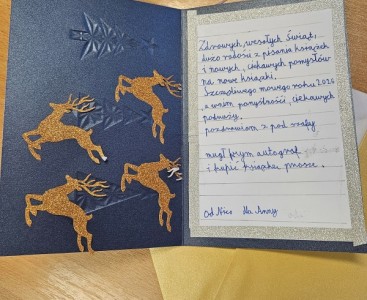 Zdrowych, wesołych Świąt,
dużo radości z pisania książek
i nowych, ciekawych pomysłów
na nowe książki.
Szczęśliwego nowego roku 2026
a w nim pomyślności, ciekawych
podróży.
pozdrawiam z pod szafy
mógł bym autograf
i kupić książkę proszę.
Od Nico dla Anny